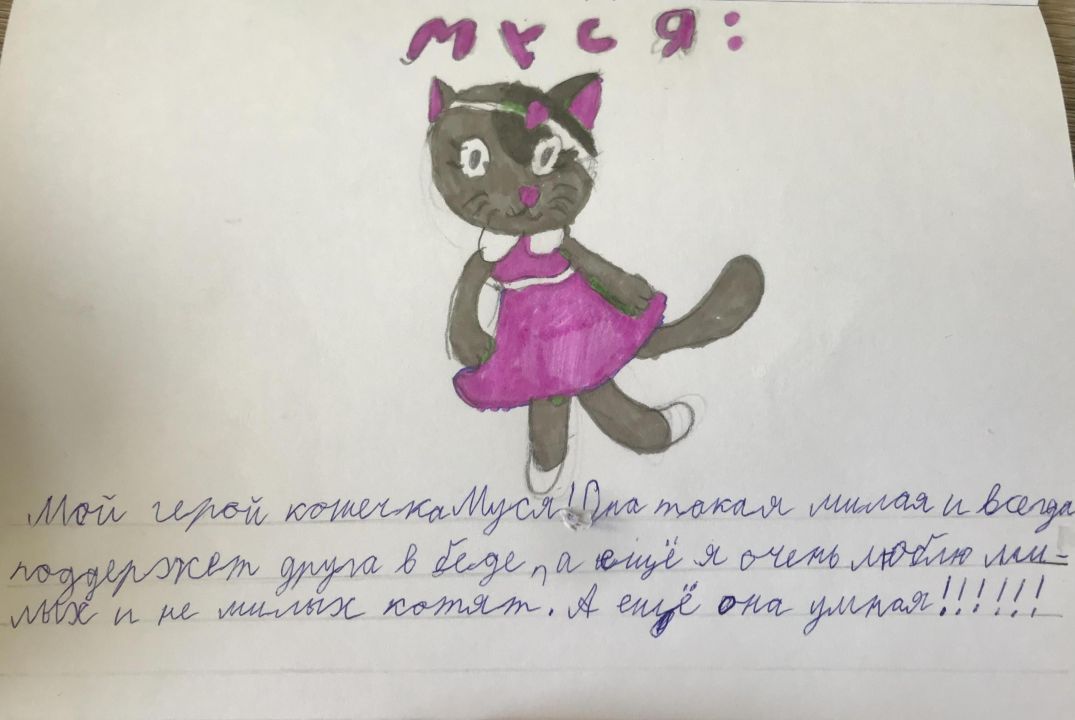 Муся:
Мой герой кошечка Муся! Она такая милая и всегда
поддержет друга в беде, а ещё я очень люблю ми-
лых и не милых котят. А ещё она умная!!!!!!